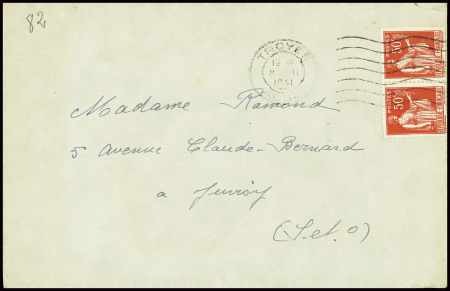 82
TROYES
1941
POSTES
50c
POSTES
50c
Madame Ramond
5 avenue Claude-Bernard
a Juvisy
(S. et. O)